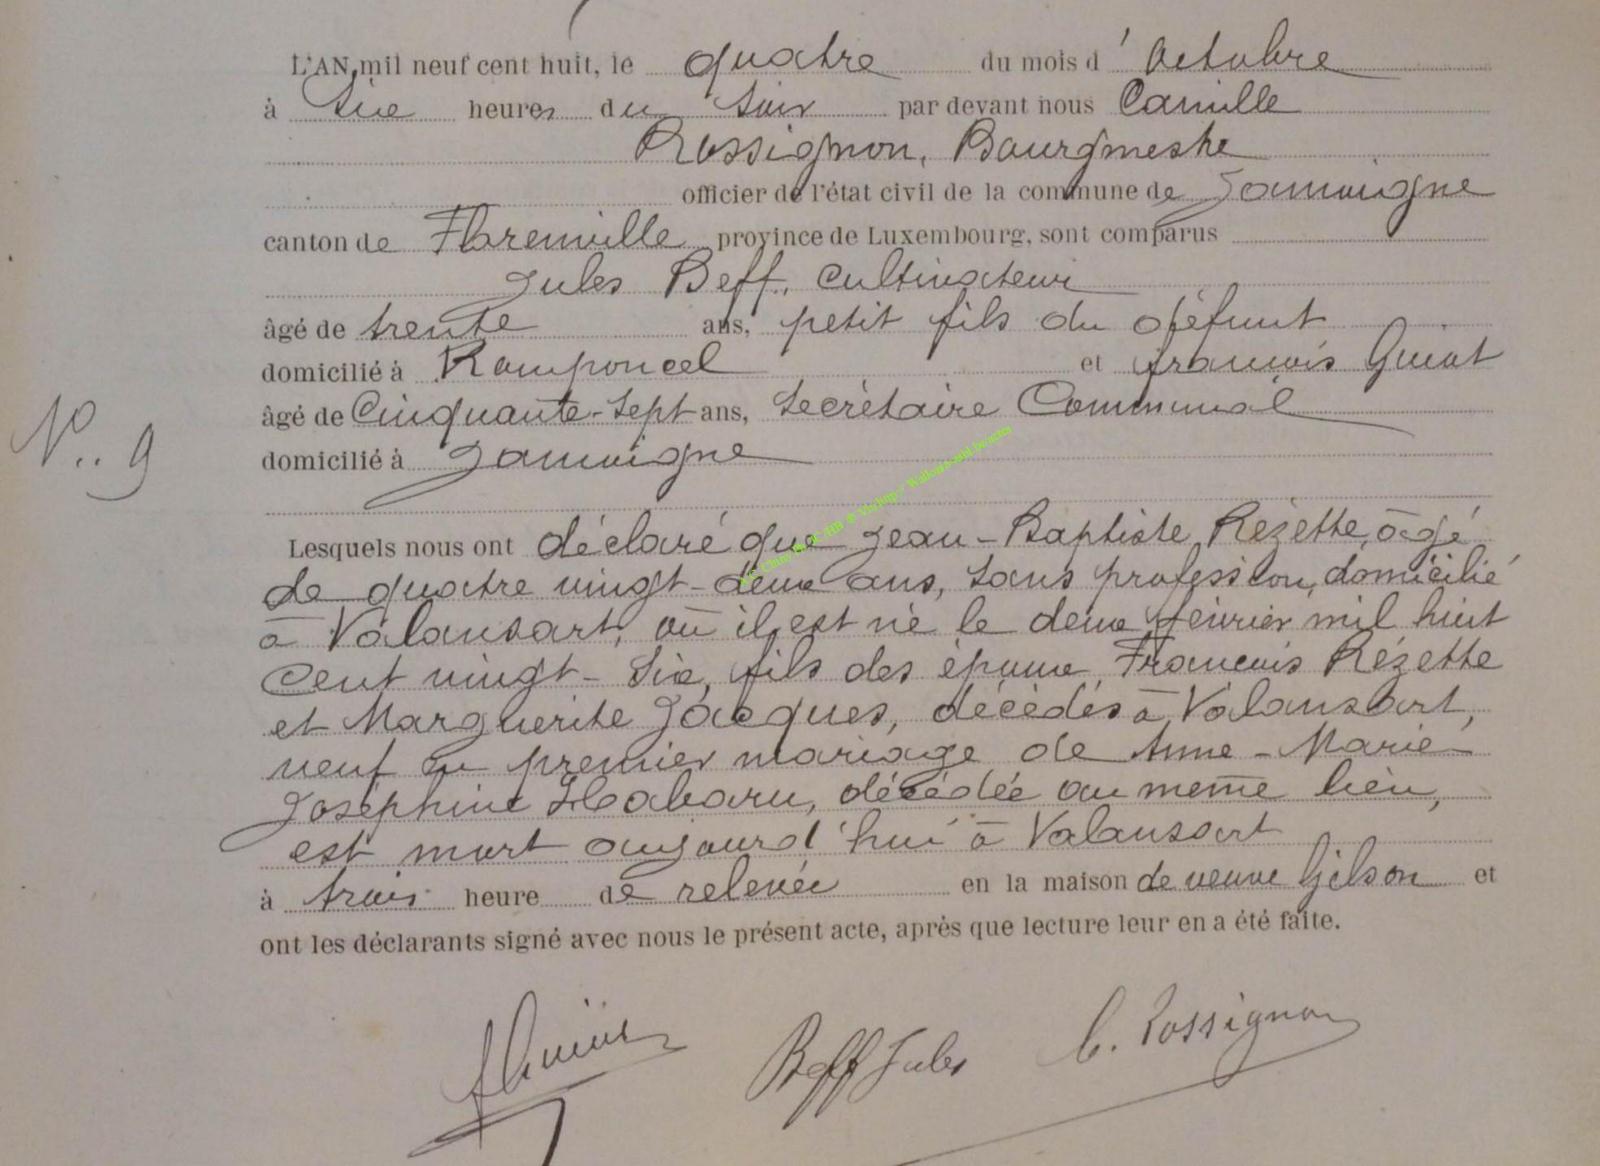 L'AN mil neuf cent huit, le quatre du mois d'Octobre
à six heures du soir par devant nous Camille
Rossignon, Bourgmestre
officier de l'état civil de la commune de Jamoigne
canton de Florenville province de Luxembourg, sont comparus
Jules Beff, cultivateur
âgé de trente ans, petit fils du défunt
domicilié à Romponcel et françois Guiot
âgé de Cinquante-sept ans, Secrétaire Communal
domicilié à Jamoigne
N° 9
Lesquels nous ont déclaré que Jean-Baptiste Rézette, âgé
de quatre vingt-deux ans, sans profession, domicilié
à Valansart, où il est né le deux février mil huit
cent vingt-six, fils des époux François Rézette
et Marguerite Jacques, décédés à Valansart,
veuf en premier mariage de Anne-Marie-
Joséphine Habaru, décédée au même lieu,
est mort aujourd'hui à Valansart
à trois heure de relevée en la maison de veuve Gilson et
ont les déclarants signé avec nous le présent acte, après que lecture leur en a été faite.
Beff Jules C. Rossignon